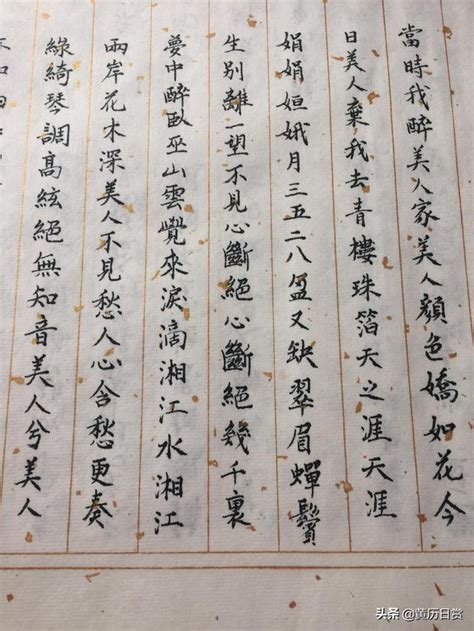 當時我醉美人家美人顔色嬌如花今
日美人棄我去青樓珠箔天之涯天涯
娟娟姮娥月三五二八盈又缺翠眉蟬鬢
生别離一望不見心斷絕心斷絕幾千裏
夢中醉臥巫山雲覺來淚滴湘江水湘江
兩岸花木深美人不見愁人心含愁更奏
綠綺琴調高絃絕無知音美人兮美人
头条 @黄历日赏